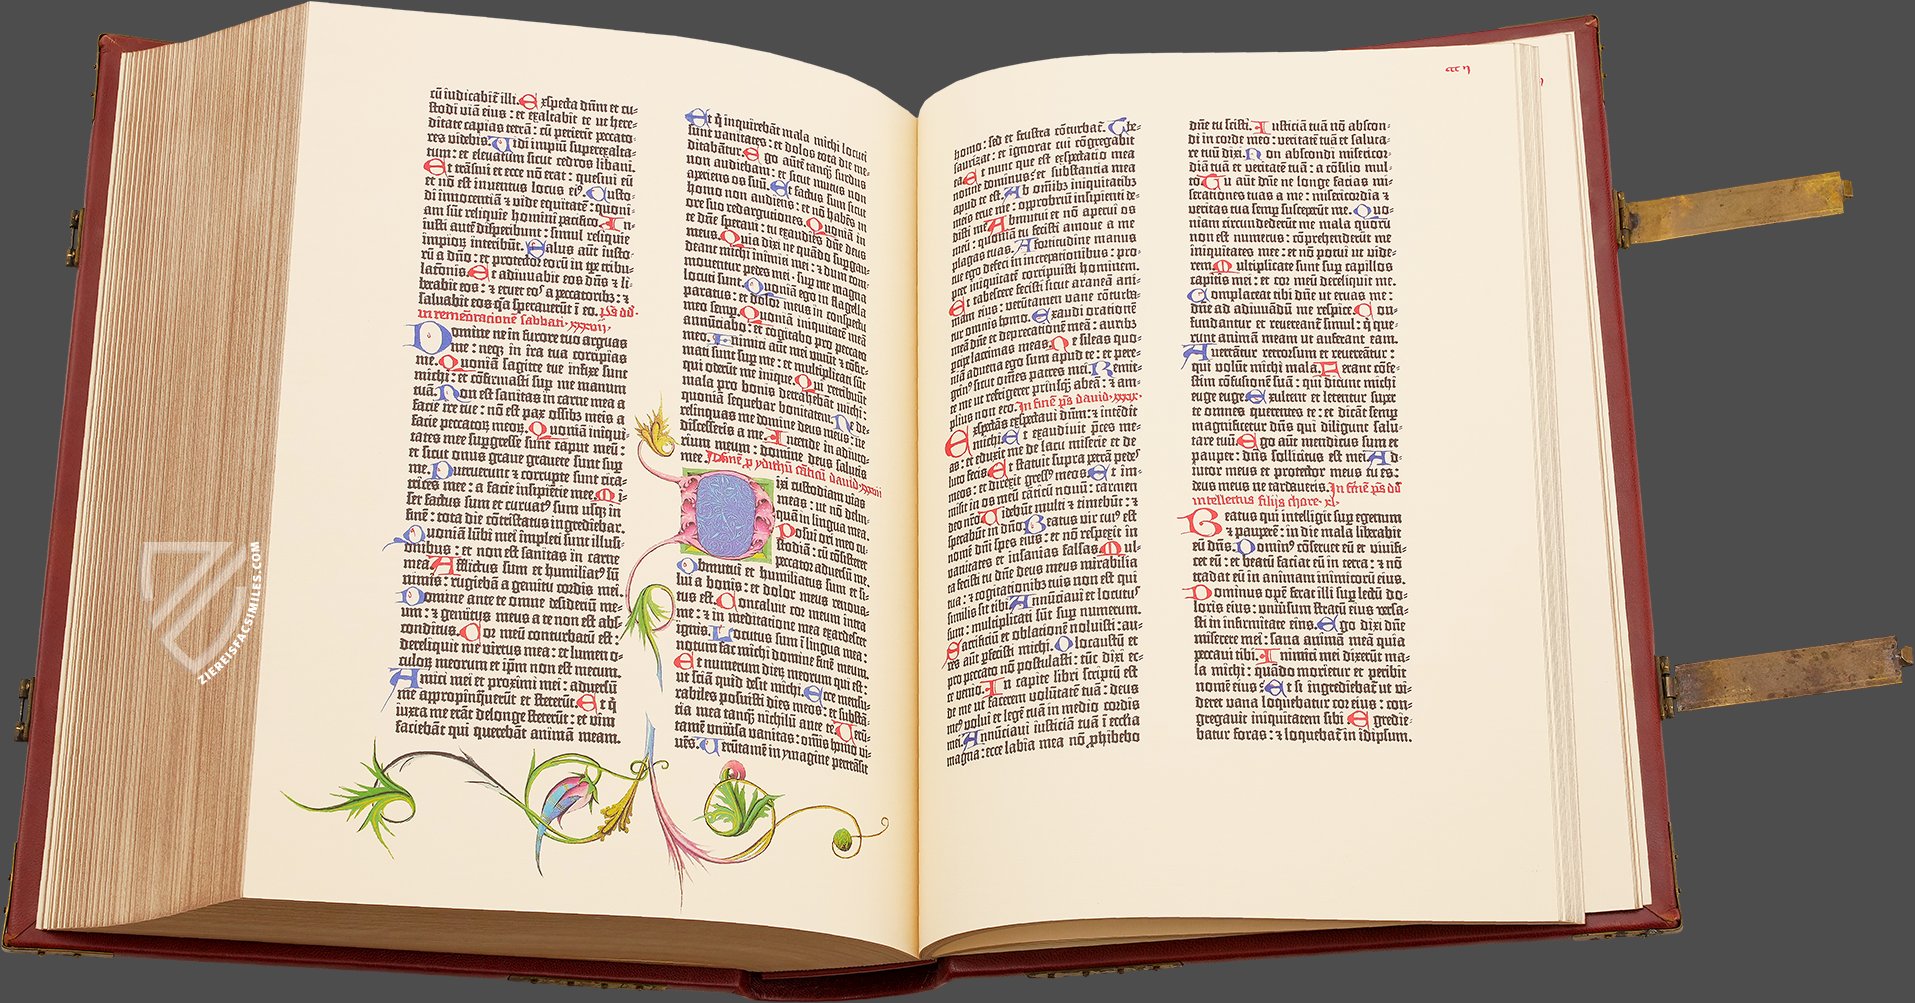 cū iudicabit̄ illi. Exspecta dn̄m et cu-
stodi viā eius: et exaltabit te ut here-
ditate capias terrā: cū perierīt peccato-
res videbis. Vidi impiū superexalta-
tum: et elevatum sicut cedros libani.
Et trāsivi et ecce nō erat: quesivi eū
et nō est inventus locus ei⁹. Custo-
di innocentiā et vide equitatē: quoni-
am sūt reliquie homini pacifico. In-
iusti autē disperibunt: simul reliquie
impioꝝ interibūt. Salus aūt iusto-
rū a dn̄o: et protector eorū in tp̄e tribu-
lac̄onis. Et adiuvabit eos dn̄s et li-
berabit eos: et eruet eos a peccatoribꝫ: et
salvabit eos q̄a speraverūt ī eo. p̄s dd̄
in remēoracionē sabbati. xxxvii.
Domine ne in furore tuo arguas
me: neqꝫ in ira tua corripias
me. Quoniā sagitte tue infixe sunt
michi: et cōfirmasti sup̄ me manum
tuā. Non est sanitas in carne mea a
facie ire tue: nō est pax ossibꝫ meis a
facie peccatoꝝ meoꝝ. Quoniā iniqui-
tates mee sup̄gresse sunt caput meū:
et sicut onus grave gravate sunt sup̄
me. Putruerunt et corrupte sunt cica-
trices mee: a facie insipiētie mee. Mi-
ser factus sum et curvat⁹ sum usqꝫ in
finē: tota die cōtristatus ingrediebar.
Quoniā lūbi mei impleti sunt illusi-
onibus: et non est sanitas in carne
mea. Afflictus sum et humiliat⁹ sū
nimis: rugiebā a gemitu cordis mei.
Domine ante te omne desideriū me-
um: et gemitus meus a te non est abs-
conditus. Cor meū conturbatū est:
dereliquit me virtus mea: et lumen o-
culoꝝ meorum et ip̄m non est mecum.
Amici mei et proximi mei: adversū
me appropinq̄verūt et steterūt. Et q̄
iuxta me erāt delonge steterūt: et vim
faciebāt qui querebāt animā meam.
Et q̄ inquirebāt mala michi locuti
sunt vanitates: et dolos tota die me-
ditabātur. Ego autē tanq̄ surdus
non audiebam: et sicut mutus non
aperiens os suū. Et factus sum sicut
homo non audiens: et nō habēs in
ore suo redargutiones. Quoniā in
te dn̄e speravi: tu exaudies dn̄e deus
meus. Quia dixi ne quādo sup̄gau-
deant michi inimici mei: et dum com-
moventur pedes mei. sup̄ me magna
locuti sunt. Quoniā ego in flagella
paratus: et dolor meus in conspectu
meo semp̄. Quoniā iniquitatē meā
annūciabo: et cogitabo pro peccato
meo. Inimici aūt mei vivūt et cōfir-
mati sunt sup̄ me: et multiplicati sūt
qui oderūt me inique. Qui retribuūt
mala pro bonis detrahebāt michi:
quoniā sequebar bonitatem. Ne de-
relinquas me domine deus meus: ne
discesseris a me. Intende in adiuto-
rium meum: domine deus salutis
mee. In finē p̄ ydithū cāticū david. xxxviii
ixi custodiam vias
meas: ut nō delin-
quā in lingua mea.
Posui ori meo cu-
stodiā: cū cōsisteret
peccator adversū me.
Obmutui et humiliatus sum et si-
lui a bonis: et dolor meus renova-
tus est. Concaluit cor meum intra
me: et in meditatione mea exardescet
ignis. Locutus sum ī lingua mea:
notum fac michi domine finē meum.
Et numerum dieꝝ meorum qui est:
ut sciā quid desit michi. Ecce mensu-
rabiles posuisti dies meos: et substā-
tia mea tanq̄ nichilū ante te. Verū-
tamē om̄īsa vanitas: om̄is homo vi-
vēs. Verūtamē in ymagine pertrāsit
homo: sed et frustra cōturbat̄. The-
saurizat: et ignorat cui cōgregabit
ea. Et nunc que est exspectatio mea
nonne dominus: et substantia mea
apud te est. Ab om̄ibꝫ iniquitatibꝫ
meis erue me: opprobriū insipienti de-
disti me. Abmutui et nō aperui os
meū: quoniā tu fecisti amove a me
plagas tuas. A fortitudine manus
tue ego defeci in increpationibus: pro-
pter iniquitatē corripuisti hominem.
Et tabescere fecisti sicut araneā ani-
mam eius: verūtamen vane cōturba-
tur omnis homo. Exaudi orationē
meā dn̄e et deprecationē meā: auribꝫ
percipe lacrimas meas. Ne sileas quo-
niā advena ego sum apud te: et pere-
grin⁹ sicut om̄es patres mei. Remit-
te me ut refrigerer priusq̄ abeā: et am-
plius non ero. In finē p̄s david. xxxix.
Exspectās exspectavi dn̄m: et intēdit
michi. Et exaudivit p̄ces me-
as: et eduxit me de lacu miserie et de
luto fecis. Et statuit supra petrā pedes
meos: et direxit gress⁹ meos. Et im-
misit in os meū cāticū novū: carmen
deo nr̄o. Videbūt multi et timebūt: et
sperabūt in dn̄o. Beatus vir cui⁹ est
nomē dn̄i spes eius: et nō respexit in
vanitates et insanias falsas. Mul-
ta fecisti tu dn̄e deus meus mirabilia
tua: et cogitationibꝫ tuis non est qui
similis sit tibi. Annūciavi et locutus
sum: multiplicati sūt sup̄ numerum.
Sacrificiū et oblacionē noluisti: au-
res aūt p̄fecisti michi. Olocaustū et
pro peccato nō postulasti: tūc dixi ec-
ce venio. In capite libri scriptū est
de me ut facerem volūtatē tuā: deus
me⁹ volui et legē tuā in medio cordis
mei. Annūciavi iusticiā tuā ī ecclesia
magna: ecce labia mea nō ꝓhibebo
dn̄e tu scisti. Iusticiā tuā nō abscon-
di in corde meo: veritatē tuā et saluta-
re tuū dixi. Non abscondi misericor-
diā tuā et veritatē tuā: a cōsilio mul-
to. Tu aūt dn̄e ne longe facias mi-
serationes tuas a me: misericordia et
veritas tua semp̄ susceperūt me. Quo-
niam circūdederūt me mala quorū
non est numerus: cōprehenderūt me
iniquitates mee: et nō potui ut vide-
rem. Multiplicate sunt sup̄ capillos
capitis mei: et cor meū dereliquit me.
Complaceat tibi dn̄e ut eruas me:
dn̄e ad adiuvādū me respice. Con-
fundantur et revereant̄ simul: q̄ que-
runt animā meam ut auferant eam.
Avertātur retrorsum et revereātur:
qui volūt michi mala. Ferant cōfe-
stim cōfusionē suā: qui dicunt michi
euge euge. Exultent et letentur super
te omnes querentes te: et dicāt semp̄
magnificetur dn̄s qui diligunt salu-
tare tuū. Ego aūt mendicus sum et
pauper: dn̄s sollicitus est mei. Ad-
iutor meus et protector meus tu es:
deus meus ne tardaveris. In finē p̄s dd̄
intellectus filijs chore. xl.
Beatus qui intelligit sup̄ egenum
et pauperē: in die mala liberabit
eū dn̄s. Domin⁹ cōservet eū et vivifi-
cet eū: et beatū faciat eū in terra: et nō
tradat eū in animam inimicorū eius.
Dominus opē ferat illi sup̄ lectū do-
loris eius: universum stratū eius versa-
sti in infirmitate eius. Ego dixi dn̄e
miserere mei: sana animā meā quia
peccavi tibi. Inimici mei dixerūt ma-
la michi: quādo morietur et peribit
nomē eius. Et si ingrediebat̄ ut vi-
deret vana loquebatur cor eius: con-
gregavit iniquitatem sibi. Egredie-
batur foras: et loquebat̄ in idipsum.
ZIEREISFACSIMILES.COM